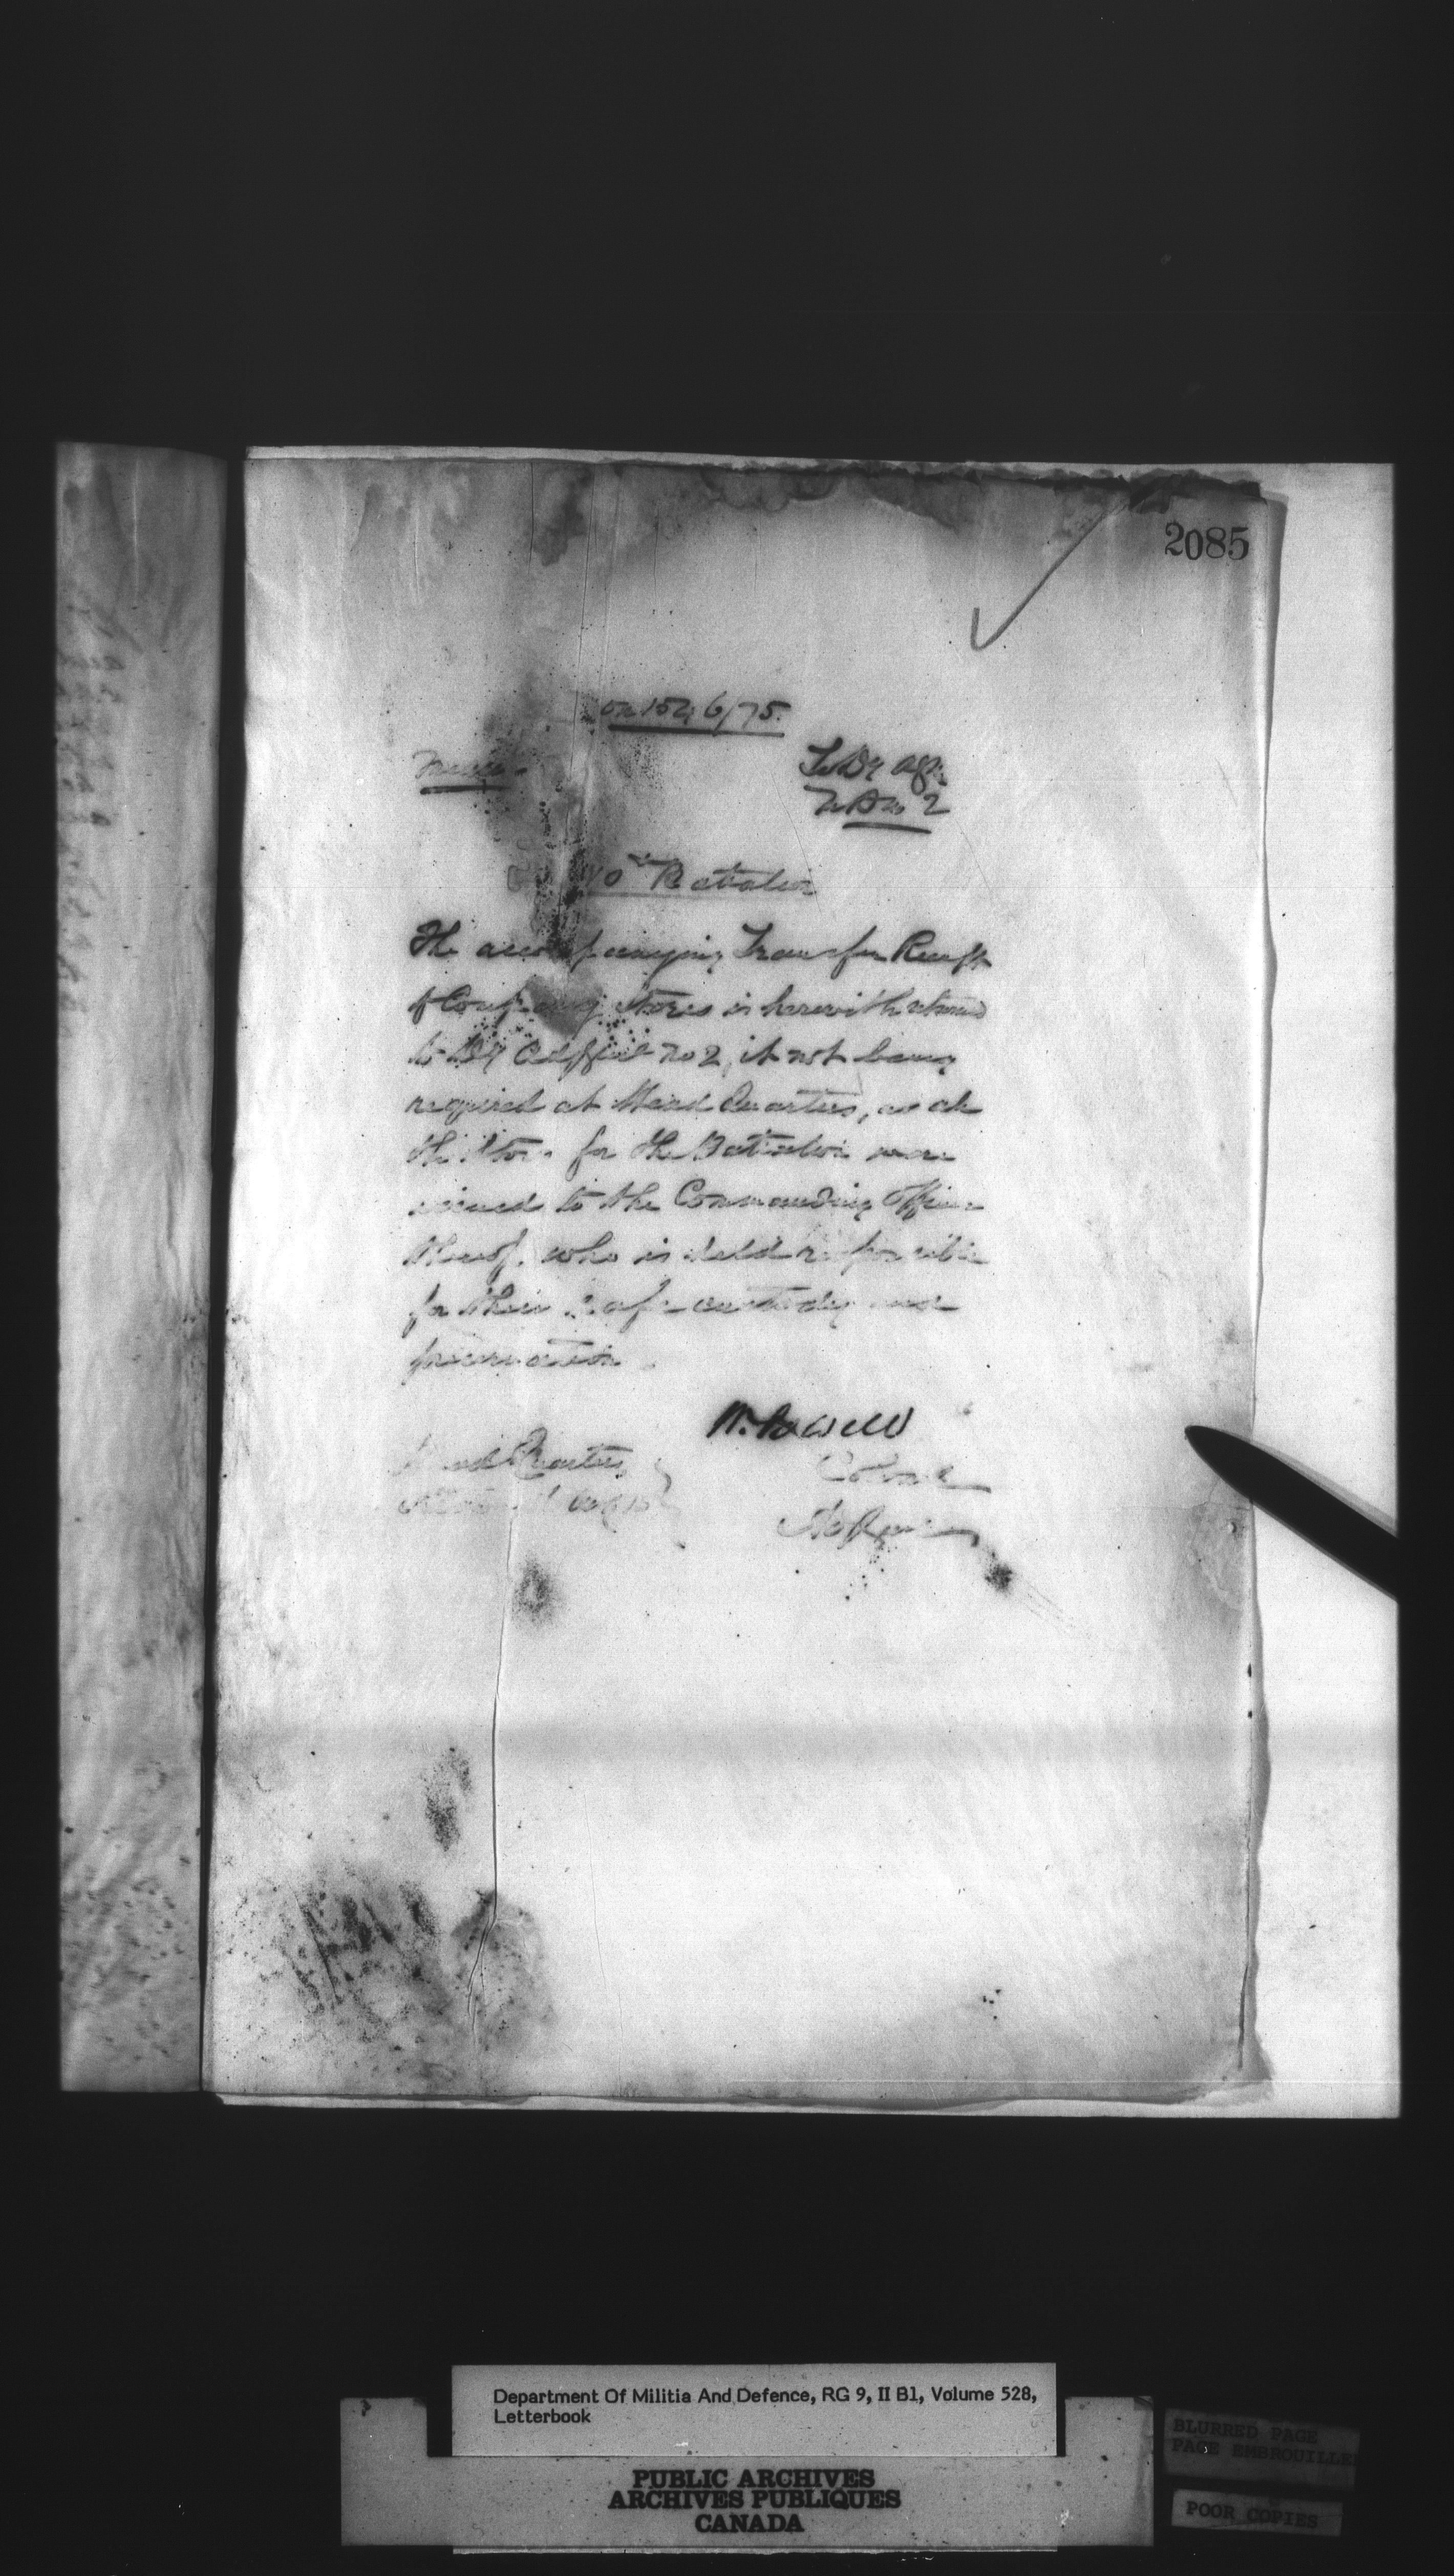 2085
6/75.
Memo.
To D.A.G.
M.D. No 2
10th Battalion
The accompanying Transfer Receipt
of Company Stores is herewith returned
to D.A. Adjt Genl No 2, it not being
required at Head Quarters, as all
the Stores for the Battalion were
issued to the Commanding Officer
thereof, who is held responsible
for their safe custody and
preservation.
W. Powell
Colonel
Head Quarters
Department Of Militia And Defence, RG 9, II B1, Volume 528,
Letterbook
PUBLIC ARCHIVES
ARCHIVES PUBLIQUES
CANADA
BLURRED PAGE
PAGE EMBROUILLE
POOR COPIES